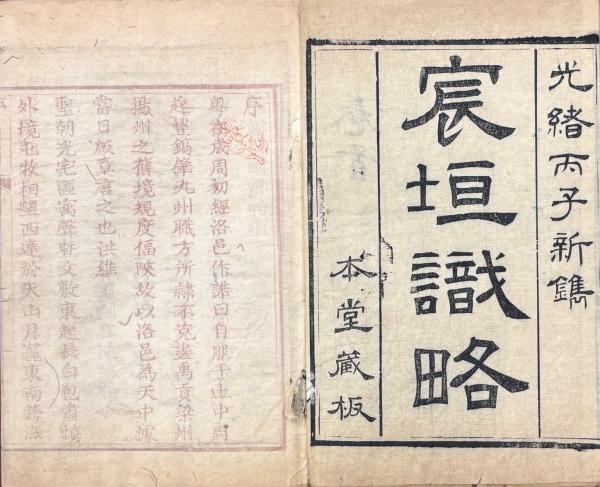 光緒丙子新鐫
宸垣識略
本堂藏板
序
粵在成周初經洛邑作誥曰自服于土中周
定豐鎬肇九州職方所隸不克盡禹貢梁州
徼州之舊境規度偪陿故以洛邑為天中據
當日版章言之也洪維
聖朝光宅區寓聲教文敷東起長白包肅慎
外境屯牧相望西達於天山月𩆩東南跨漲